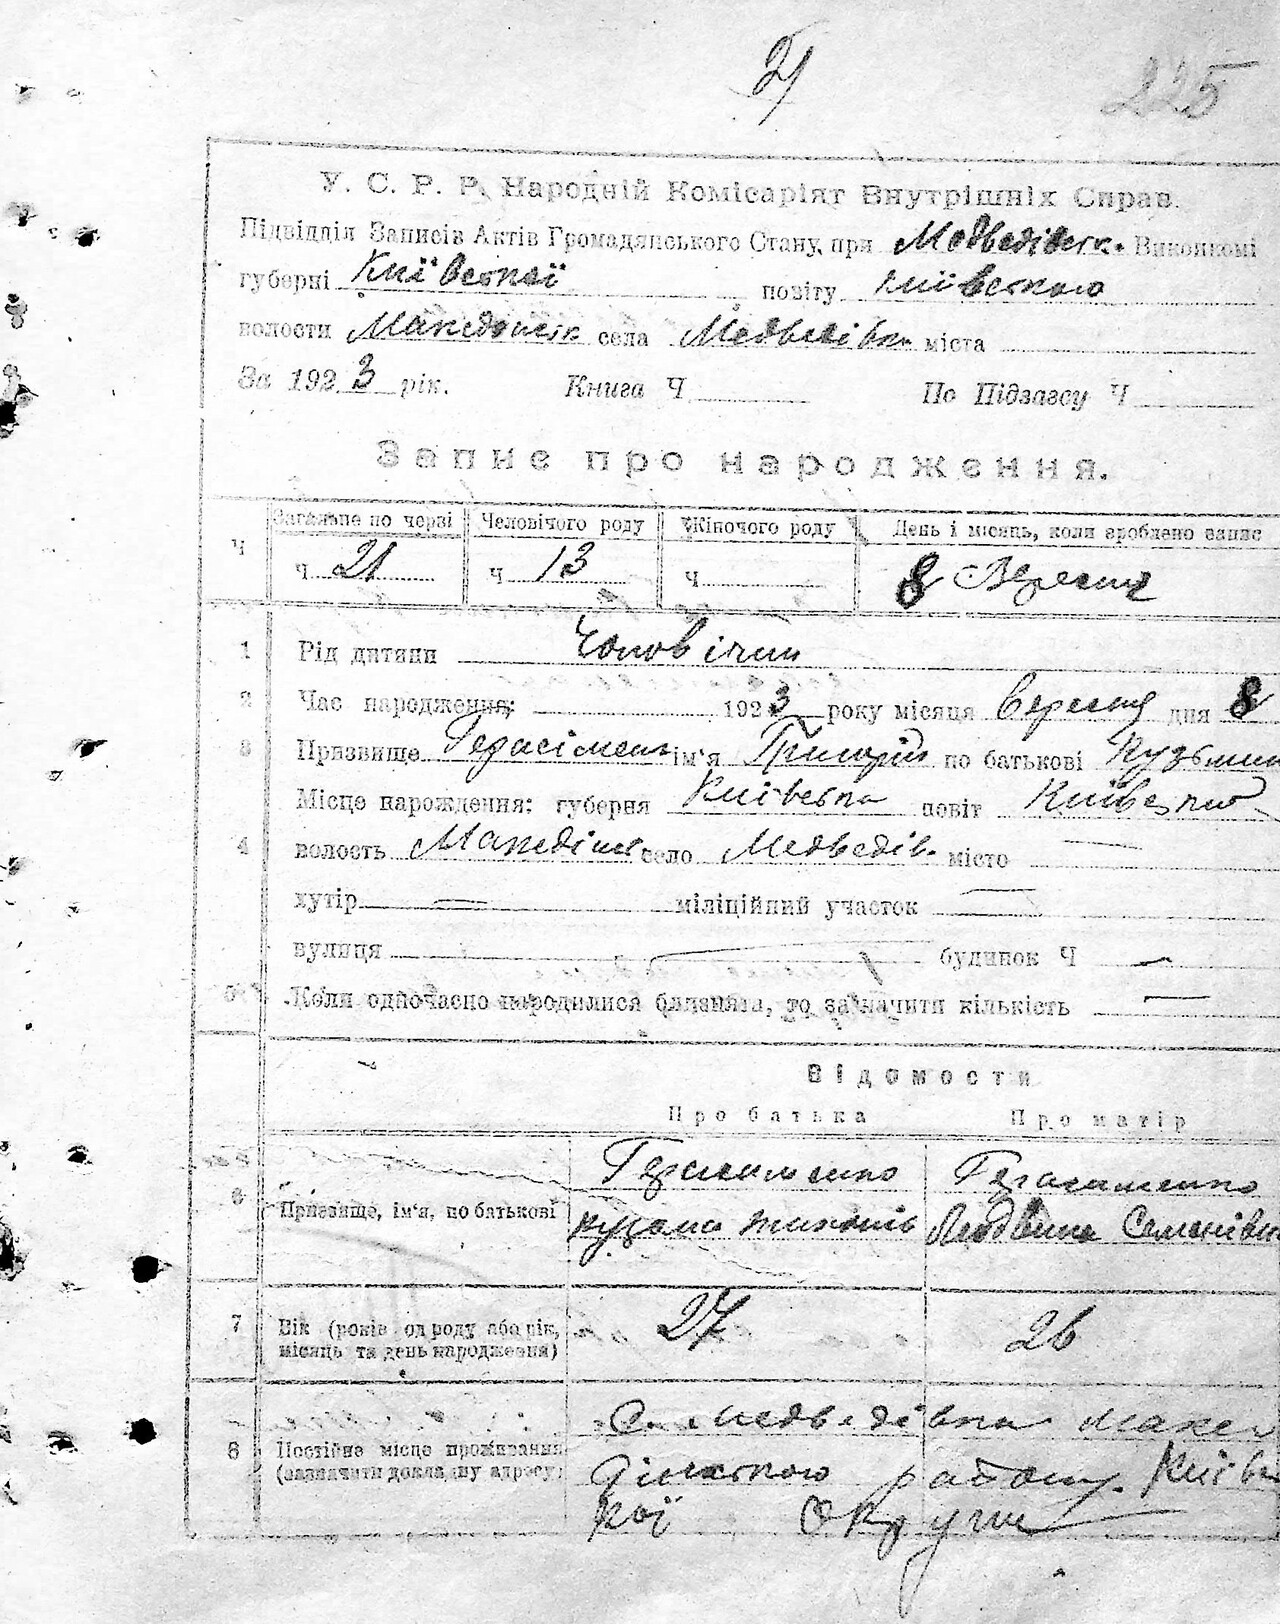 21
225
У. С. Р. Р. Народній Комісаріят Внутрішніх Справ.
Підвідділ Записів Актів Громадянського Стану, при Медведівск. Виконкомі
губерні Київської повіту Київського
волости Македонск села Медведівки міста
За 1923 рік. Книга Ч По Підзагсу Ч
Запис про народження.
Загальне по черзі Человічого роду Жіночого роду День і місяць, коли зроблено запис
Ч ч 21 ч 13 ч 8 Вересня
1 Рід дитини Чоловічий
2 Час народження: 1923 року місяця вересня дня 8
3 Призвище Герасімен ім'я Григорій по батькові Кузьмин
Місце народження: губерня Київська повіт Київський
4 волость Македінск. село Медведів. місто —
хутір — міліційний участок —
вулиця — будинок Ч —
5 Коли одночасно народилися близнята, то зазначити кількість —
Відомости
Про батька Про матір
6 Призвище, ім'я, по батькові Герасименко Герасименко
кузьма Людвина Семенівна
7 Вік (років од роду або рік, місяць та день народження) 27 26
8 Постійне місце проживання (зазначити докладну адресу) С. Медведівка Маке
району. Київсь
кої Округи